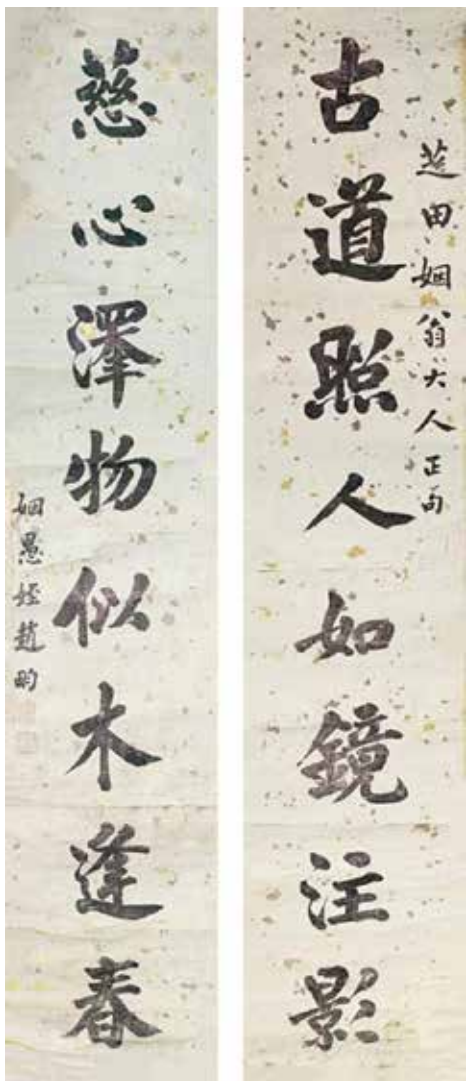 芝田姻翁大人正句
古道照人如鏡注影
慈心澤物似木逢春
姻愚姪趙昀